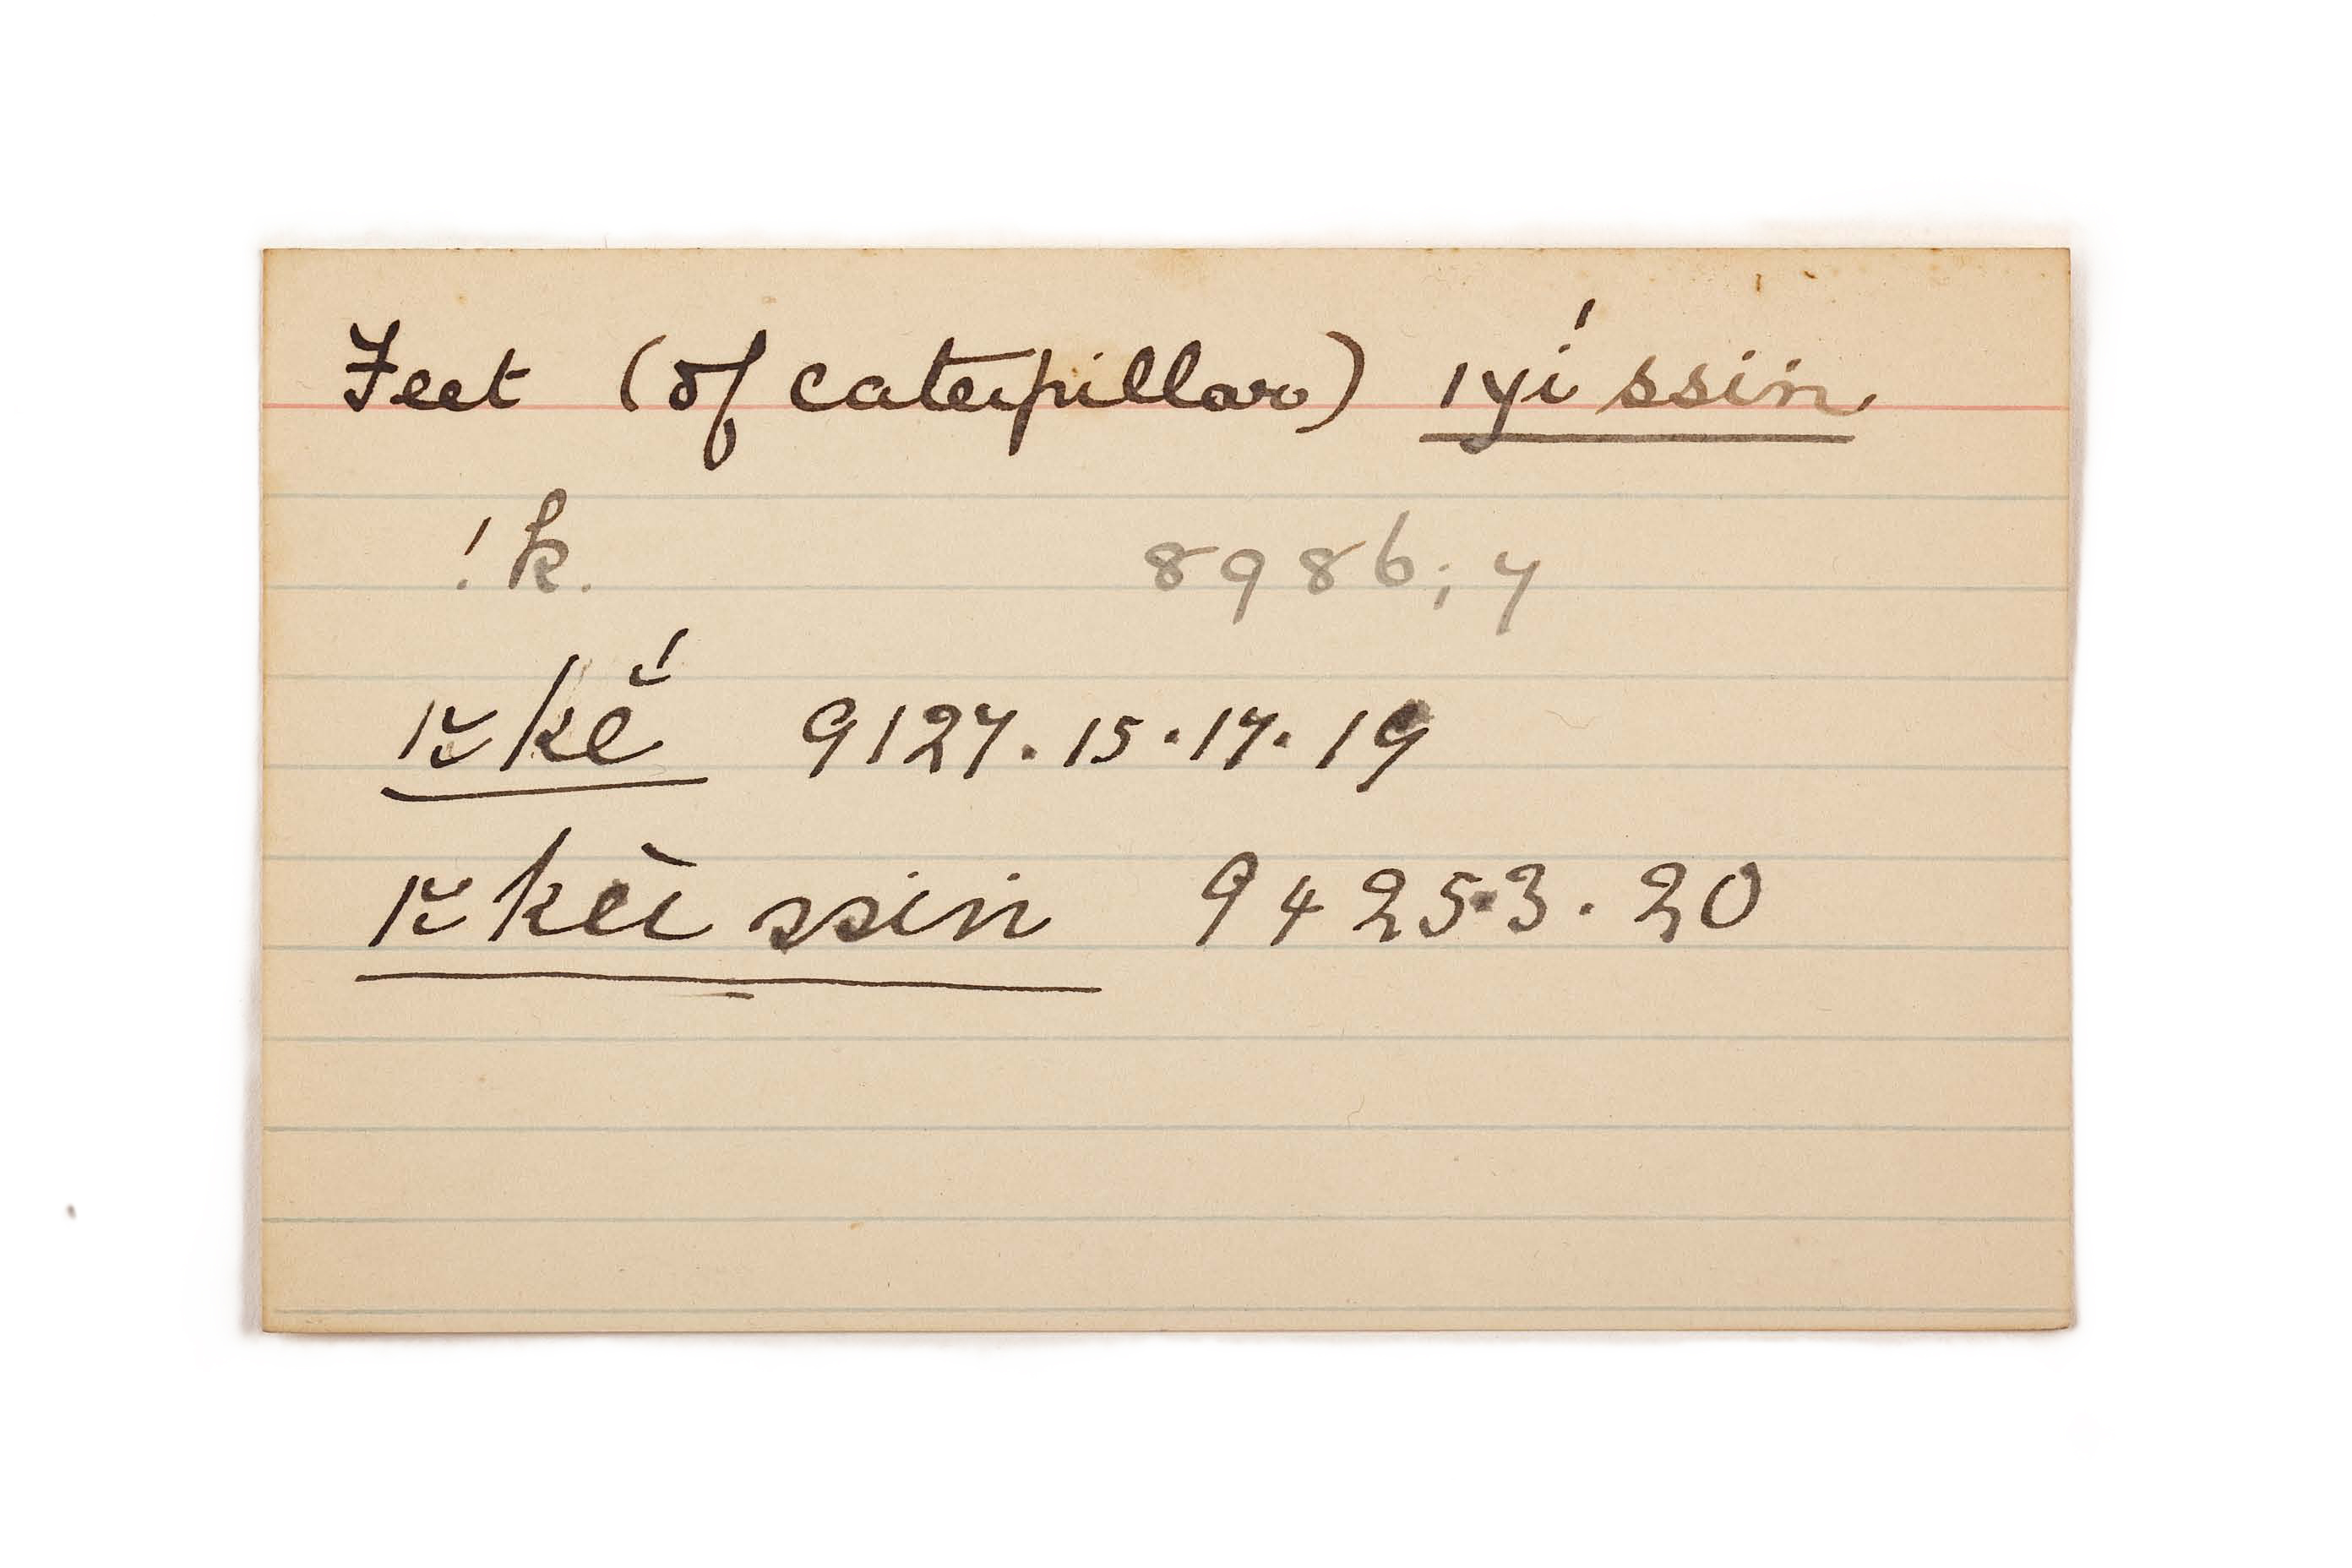 Feet (of caterpillar) ǀyí ssin
! k. 8986; 7
ǀ̰̆kĕ́ 9127. 15. 17. 19
ǀ̰̆kèi ssin 9425. 3. 20